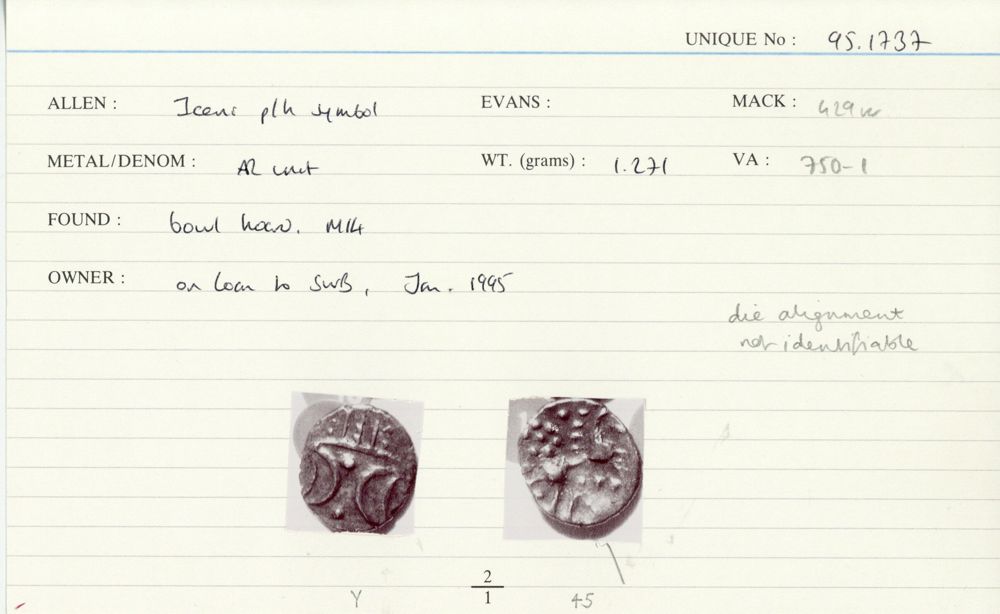 UNIQUE No : 95.1737
ALLEN : Iceni plh symbol EVANS : MACK : 429 var
METAL/DENOM : AR unit WT. (grams) : 1.271 VA : 750-1
FOUND : bowl hoard. M14
OWNER : on loan to SWB, Jan. 1995
die alignment
not identifiable
2
Y 1 45